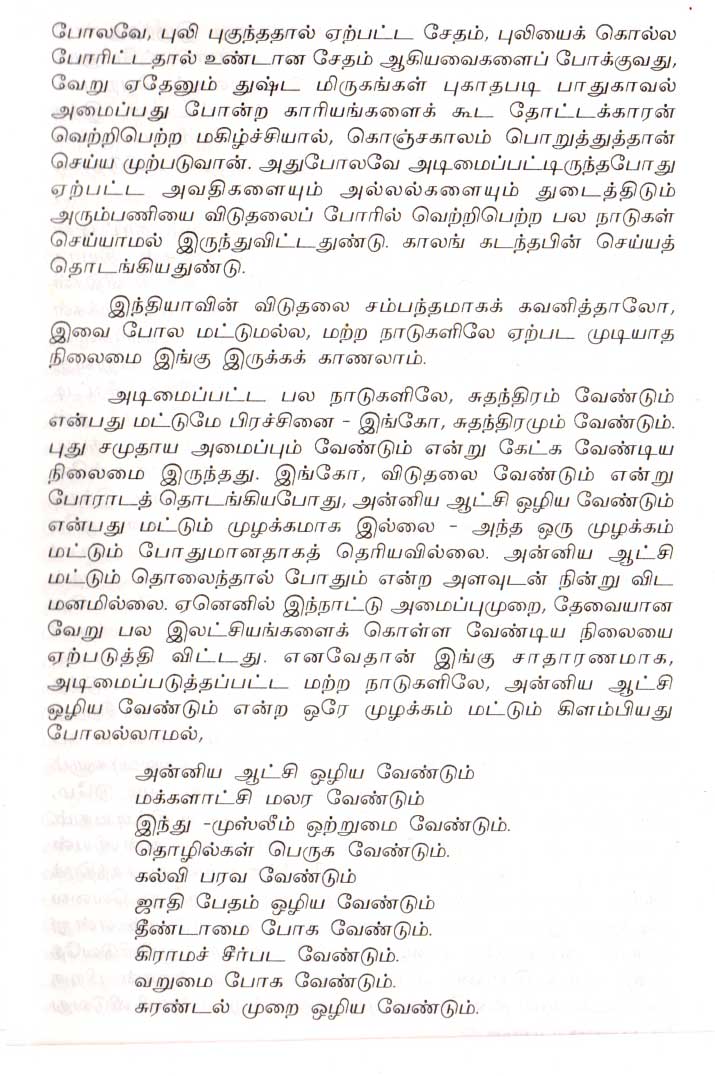 போலவே, புலி புகுந்ததால் ஏற்பட்ட சேதம், புலியைக் கொல்ல
போரிட்டதால் உண்டான சேதம் ஆகியவைகளைப் போக்குவது,
வேறு ஏதேனும் துஷ்ட மிருகங்கள் புகாதபடி பாதுகாவல்
அமைப்பது போன்ற காரியங்களைக் கூட தோட்டக்காரன்
வெற்றிபெற்ற மகிழ்ச்சியால், கொஞ்சகாலம் பொறுத்துத்தான்
செய்ய முற்படுவான். அதுபோலவே அடிமைப்பட்டிருந்தபோது
ஏற்பட்ட அவதிகளையும் அல்லல்களையும் துடைத்திடும்
அரும்பணியை விடுதலைப் போரில் வெற்றிபெற்ற பல நாடுகள்
செய்யாமல் இருந்துவிட்டதுண்டு. காலங் கடந்தபின் செய்யத்
தொடங்கியதுண்டு.
இந்தியாவின் விடுதலை சம்பந்தமாகக் கவனித்தாலோ,
இவை போல மட்டுமல்ல, மற்ற நாடுகளிலே ஏற்பட முடியாத
நிலைமை இங்கு இருக்கக் காணலாம்.
அடிமைப்பட்ட பல நாடுகளிலே, சுதந்திரம் வேண்டும்
என்பது மட்டுமே பிரச்சினை – இங்கோ, சுதந்திரமும் வேண்டும்.
புது சமுதாய அமைப்பும் வேண்டும் என்று கேட்க வேண்டிய
நிலைமை இருந்தது. இங்கோ, விடுதலை வேண்டும் என்று
போராடத் தொடங்கியபோது, அன்னிய ஆட்சி ஒழிய வேண்டும்
என்பது மட்டும் முழக்கமாக இல்லை – அந்த ஒரு முழக்கம்
மட்டும் போதுமானதாகத் தெரியவில்லை. அன்னிய ஆட்சி
மட்டும் தொலைந்தால் போதும் என்ற அளவுடன் நின்று விட
மனமில்லை. ஏனெனில் இந்நாட்டு அமைப்புமுறை, தேவையான
வேறு பல இலட்சியங்களைக் கொள்ள வேண்டிய நிலையை
ஏற்படுத்தி விட்டது. எனவேதான் இங்கு சாதாரணமாக,
அடிமைப்படுத்தப்பட்ட மற்ற நாடுகளிலே, அன்னிய ஆட்சி
ஒழிய வேண்டும் என்ற ஒரே முழக்கம் மட்டும் கிளம்பியது
போலல்லாமல்,
அன்னிய ஆட்சி ஒழிய வேண்டும்
மக்களாட்சி மலர வேண்டும்
இந்து –முஸ்லீம் ஒற்றுமை வேண்டும்.
தொழில்கள் பெருக வேண்டும்.
கல்வி பரவ வேண்டும்
ஜாதி பேதம் ஒழிய வேண்டும்
தீண்டாமை போக வேண்டும்.
கிராமச் சீர்பட வேண்டும்.
வறுமை போக வேண்டும்.
சுரண்டல் முறை ஒழிய வேண்டும்.